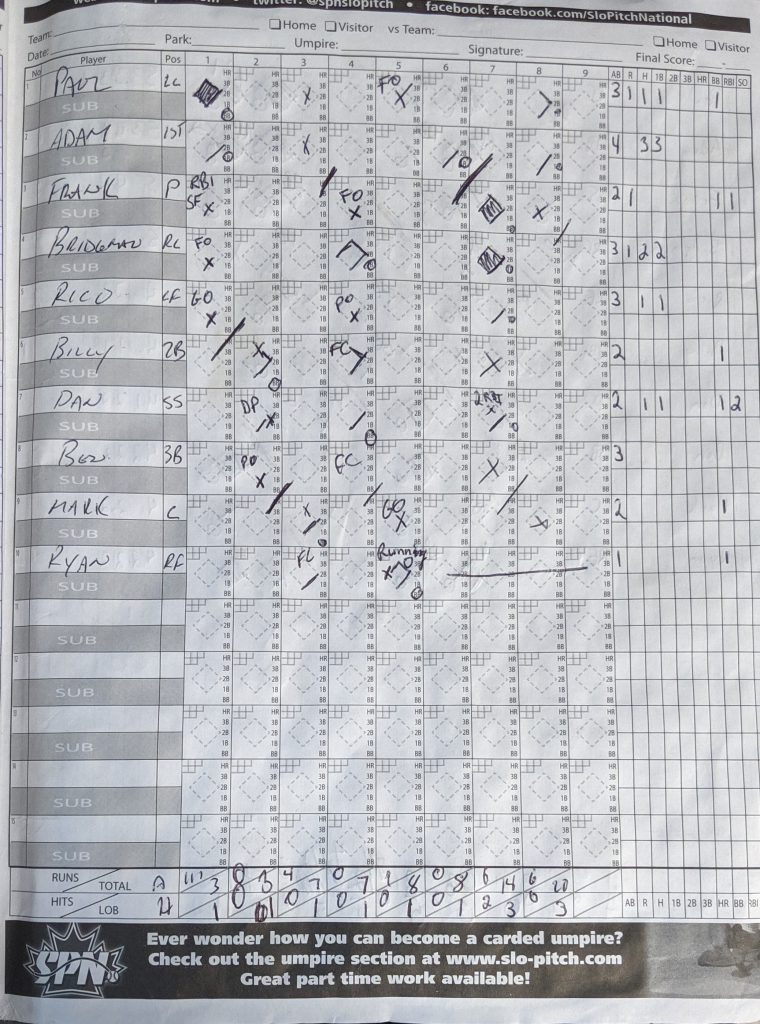 twitter: @spnslopitch • facebook: facebook.com/SloPitchNational
Team: Home Visitor vs Team: Home Visitor
Date: Park: Umpire: Signature: Final Score:
No Player Pos 1 2 3 4 5 6 7 8 9 AB R H 1B 2B 3B HR BB RBI SO
PAUL LC X FO X 3 1 1 1 1
SUB
2 ADAM 1ST X 4 3 3
SUB
3 FRANK P RBI SF X FO X X 2 1 1 1
SUB
4 BRIDGMAN RC FO X 3 1 2 2
SUB
5 RICO CF GO X PO X 3 1 1
SUB
6 BILLY 2B X FC X 2 1
SUB
7 DAN SS DP X 2 RBI X 2 1 1 1 2
SUB
8 BEN 3B PO X FC X 3
SUB
9 MARK C X GO X X 2 1
SUB
10 RYAN RF FC Running X 1 1
SUB
11
SUB
12
SUB
SUB
SUB
15
SUB
RUNS TOTAL A 3 0 3 4 7 0 7 1 8 0 8 6 14 6 20
HITS LOB 1 0 1 0 1 0 1 0 1 0 1 2 3 0 3 AB R H 1B 2B 3B HR BB RBI
SPN
Ever wonder how you can become a carded umpire?
Check out the umpire section at www.slo-pitch.com
Great part time work available!